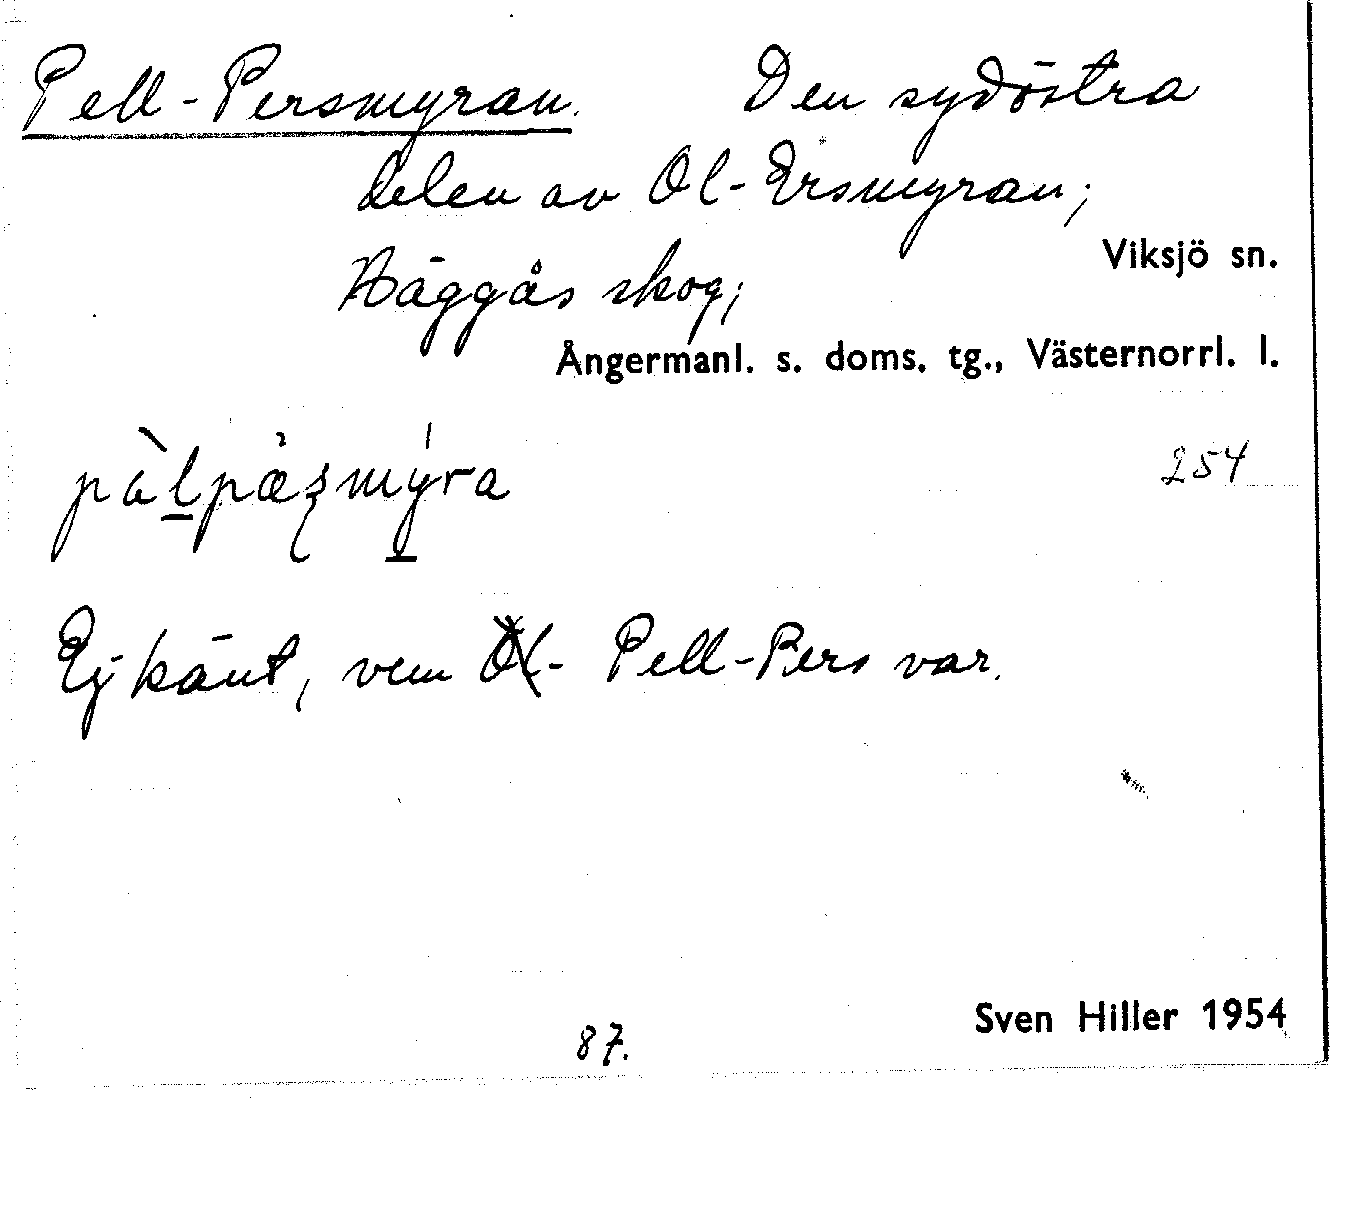 Pell-Persmyran. Den sydöstra
delen av Ol-Ersmyran;
Viksjö sn.
Häggås skog;
Ångermanl. s. doms. tg., Västernorrl. l.
254
Ej känt, vem Pell-Pers var.
Sven Hiller 1954
87.